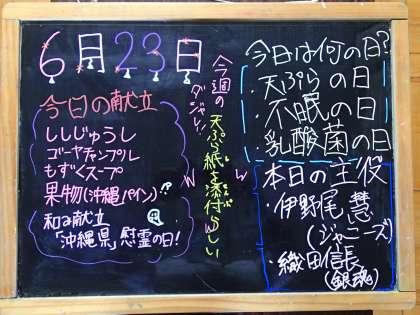 6月23日
今日の献立
ししじゅうし
ゴーヤチャンプル
もずくスープ
果物(沖縄パイン)
和み献立
「沖縄県」慰霊の日!
今週の
ダジャレ!!
天ぷら紙を添付らしい
w w w
今日は何の日?
・天ぷらの日
・不眠の日
・乳酸菌の日
本日の主役
・伊野尾 慧
(ジャニーズ)
・織田信長
(銀魂)